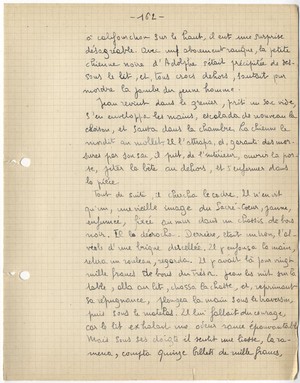 - 162 -
à califourchon sur le haut, il eut une surprise
désagréable. Avec un aboiement rauque, la petite
chienne noire d'Adolphe s'était précipitée de des-
sous le lit, et, tous crocs dehors, sautait pour
mordre la jambe du jeune homme.
Jean revint dans le grenier, prit un sac vide,
s'en enveloppa les mains, escalada de nouveau la
cloison, et sauta dans la chambre. La chienne le
mordit au mollet. Il l'attrapa, et, garanti des mor-
sures par son sac, il put, de l'intérieur, ouvrir la por-
te, jeter la bête au dehors, et s'enfermer dans
la pièce.
Tout de suite, il chercha le coffre. Il n'en vit
qu'une vieille image du Sacré-Coeur, jaunie,
enfumée, fixée au mur dans un chassis de bois
noir. Il la décrocha. Derrière, était un trou, l'al-
véole d'une brique descellée. Il y enfonça la main,
retira un rouleau, regarda. Il y avait là pour vingt
mille francs de bons du Trésor. Jean les mit sur la
table, alla au lit, chassa la chatte, et, réprimant
sa répugnance, plongea la main sous le traversin,
puis sous le matelas. Il lui fallait du courage,
car le lit exhalait une odeur rance épouvantable.
Mais sous ses doigts il sentit une liasse, la ra-
mena, compta quinze billets de mille francs,